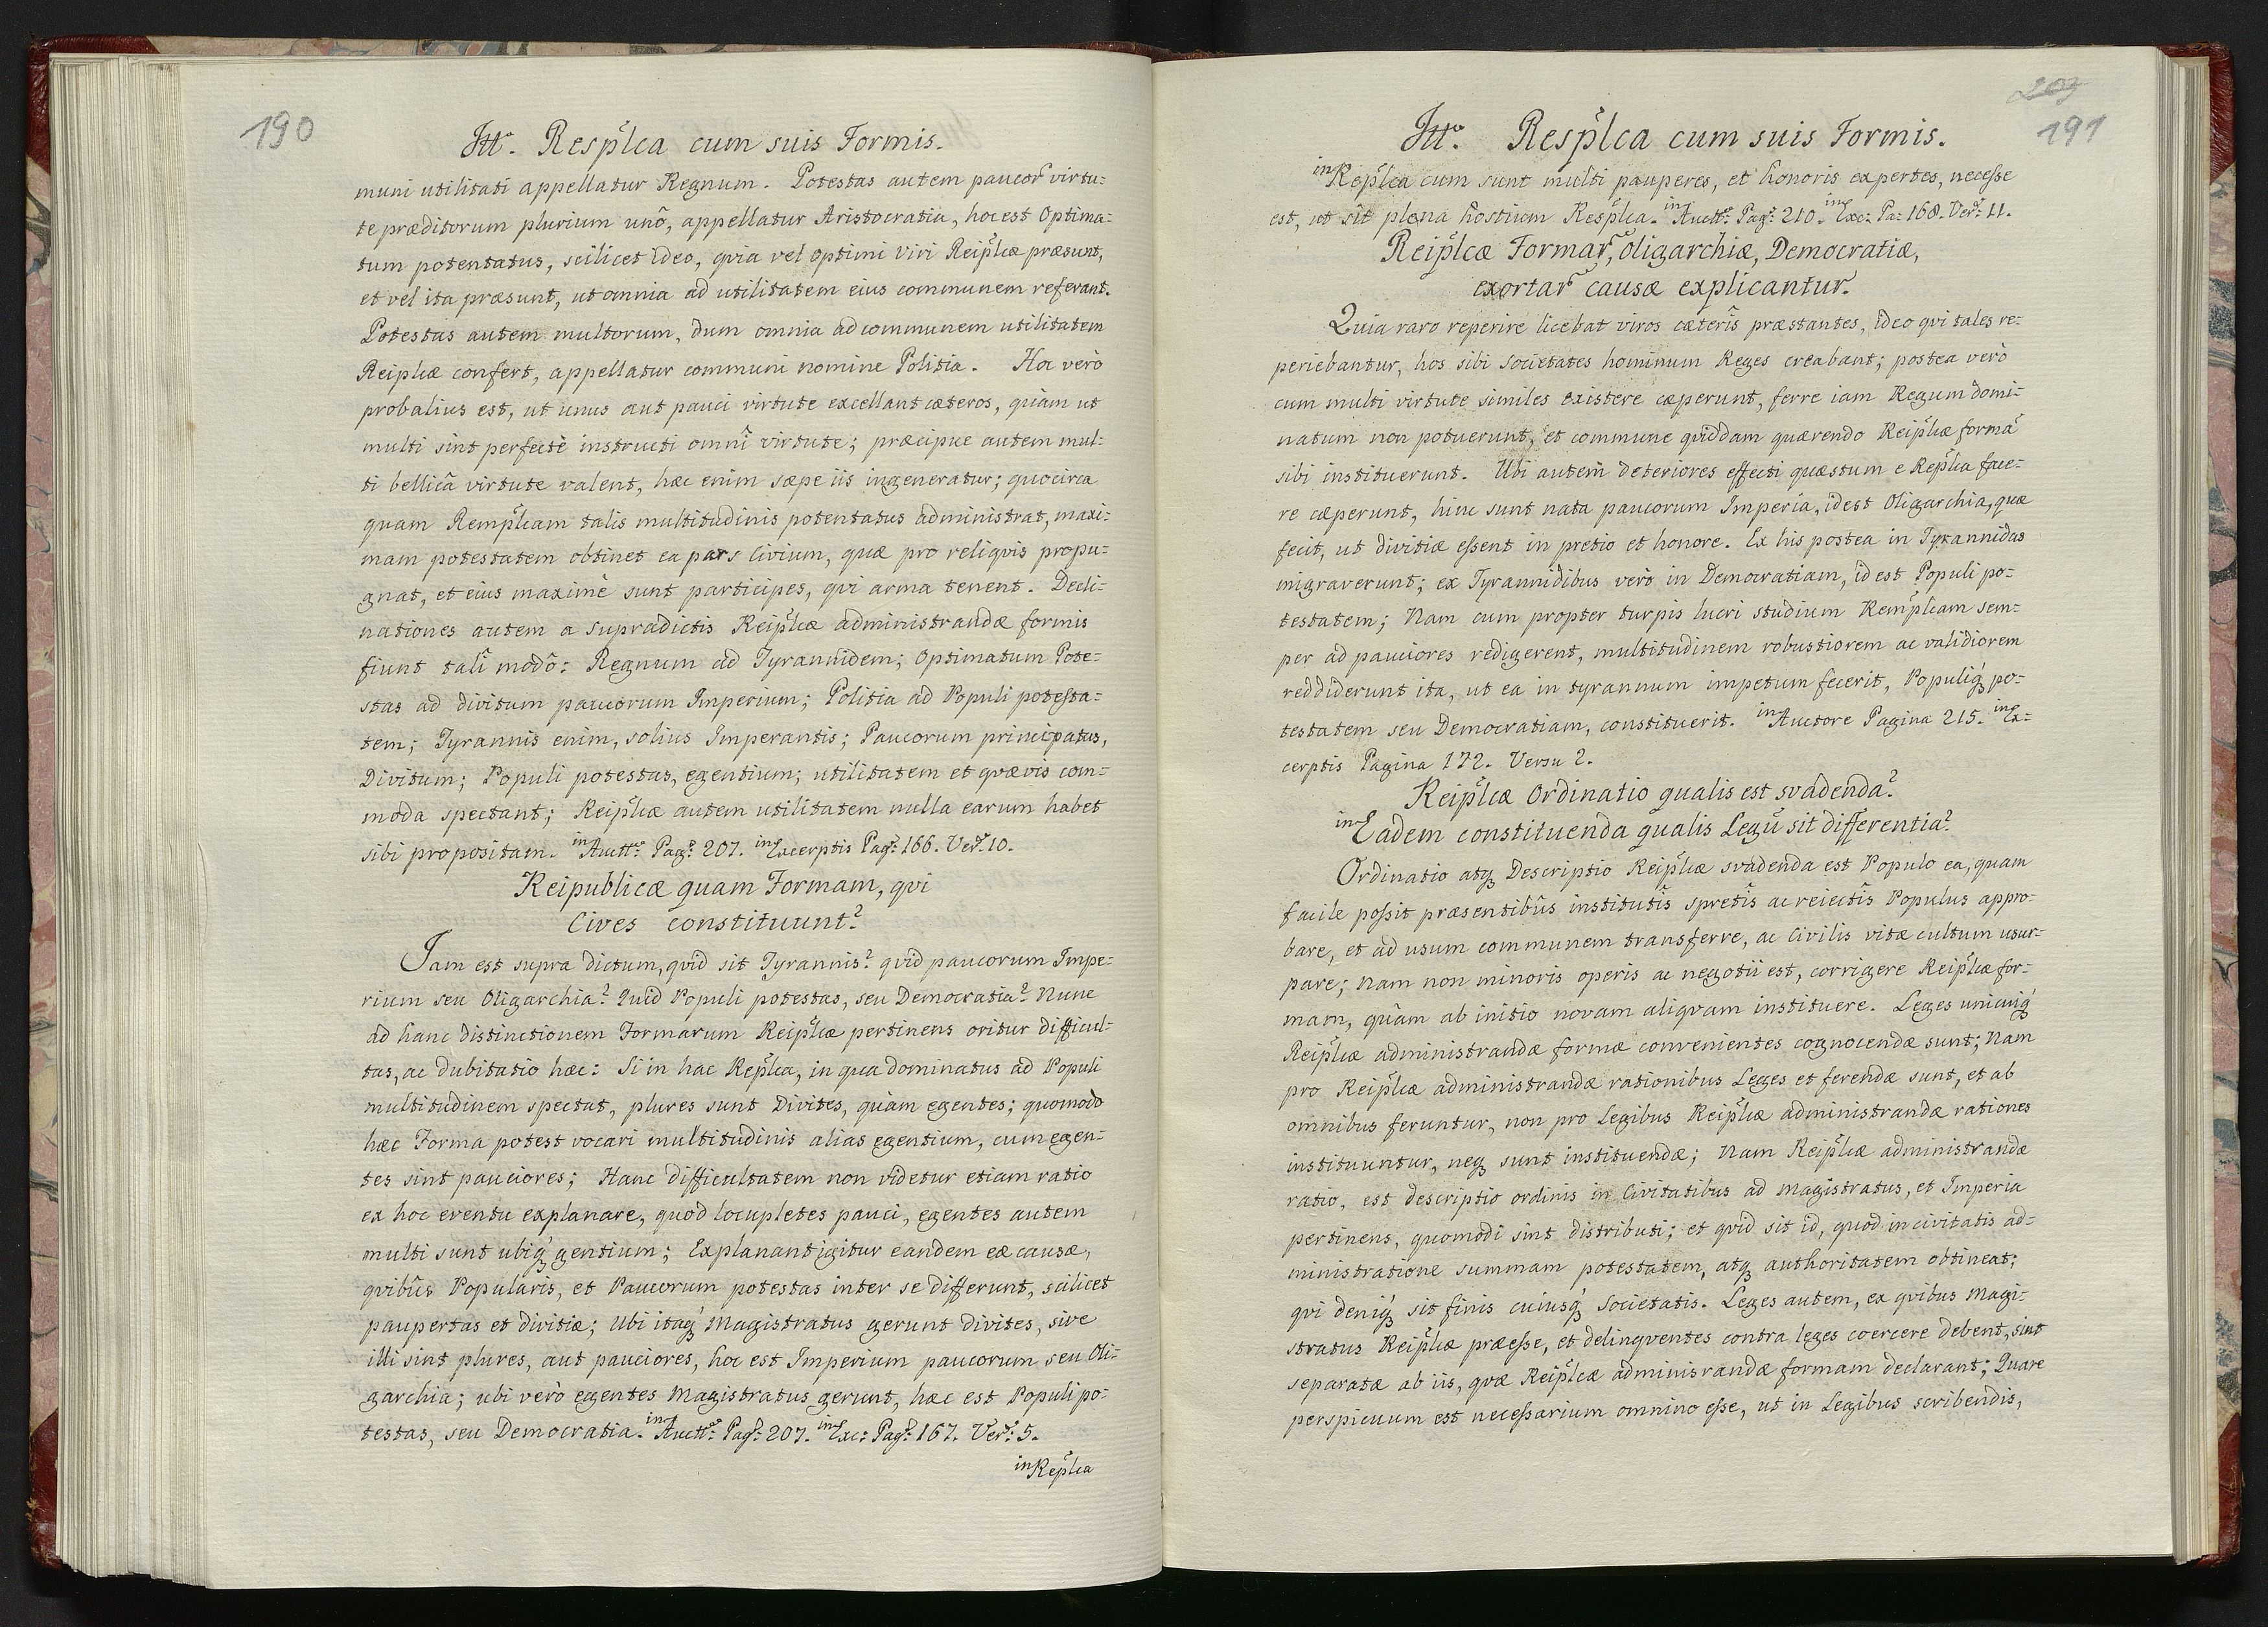 190
Ittº. Respl̃ca cum suis Formis.
muni utilitati appellatur Regnum. Potestas autem paucoř virtu=
te præditorum plurium unô, appellatur Aristocratia, hoc est Optima=
tum potentatus, scilicet ideo, qvia vel optimi Viri Reipl̃cæ præsunt,
et vel ita præsunt, ut omnia ad utilitatem eius communem referant.
Potestas autem multorum, dum omnia ad communem utilitatem
Reipl̃cæ confert, appellatur communi nomine Politia. Hoc verò
probalius est, ut unus aut pauci virtute excellant cæteros, quàm ut
multi sint perfectè instructi omnî virtute; præcipue autem mul=
ti bellicâ virtute valent, hæc enim sæpe iis ingeneratur; quocirca
quam Rempl̃cam talis multitudinis potentatus administrat, maxi=
mam potestatem obtinet ea pars Civium, quæ pro reliqvis propu=
gnat, et eius maximè sunt participes, qvi arma tenent. Decli=
nationes autem a supradictis Reipl̃cæ administrandæ formis
fiunt talî modô: Regnum ad Tyrannidem; Optimatum Pote=
stas ad divitum paucorum Imperium; Politia ad Populi potesta=
tem; Tyrannis enim, solius Imperantis; Paucorum principatus,
Divitum; Populi potestas, egentium; utilitatem et qvævis com=
moda spectant; Reipl̃cæ autem utilitatem nulla earum habet
sibi propositam. in Auctt: Pag: 207. in Excerptis Pag: 166. Ver: 10.
Reipublicæ quam Formam, qvi
Cives constituunt?
Iam est supra dictum, qvid sit Tyrannis? qvid paucorum Impe=
rium seu Oligarchia? Quid Populi potestas, seu Democratia? Nunc
ad hanc distinctionem Formarum Reipl̃cæ pertinens oritur difficul=
tas, ac dubitatio hæc: Si in hac Repl̃ca, in qua dominatus ad Populi
multitudinem spectat, plures sunt Divites, quàm egentes; quomodo
hæc Forma potest vocari multitudinis alias egentium, cum egen=
tes sint pauciores; Hanc difficultatem non videtur etiam ratio
ex hoc eventu explanare, quod locupletes pauci, egentes autem
multi sunt ubiq́ȝ gentium; Explanant igitur eandem eæ causæ,
qvibûs Popularis, et Paucorum potestas inter se differunt, scilicet
paupertas et divitiæ; Ubi itaq́ȝ Magistratus gerunt divites, sive
illi sint plures, aut pauciores, hoc est Imperium paucorum seu Oli=
garchia; ubi verò egentes Magistratus gerunt, hæc est Populi po=
testas, seu Democratia. in Auctt: Pag: 207. in Exc: Pag: 167. Ver: 5.
in Repl̃ca
203
191
Ittº. Respl̃ca cum suis Formis.
in Repl̃ca cum sunt multi pauperes, et honoris expertes, necesse
est, ut sit plena hostium Respl̃ca. in Auctt: Pag: 210. in Exc: Pa: 168. Ver: 11.
Reipl̃cæ Formař, Oligarchiæ, Democratiæ,
exortař causæ explicantur.
Quia raro reperire licebat viros cæterîs præstantes, ideo qvi tales re=
periebantur, hos sibi societates hominum Reges creabant; postea verò
cum multi virtute similes existere cæperunt, ferre iam Regum domi=
natum non potuerunt, et commune qviddam quærendo Reipl̃cæ formã
sibi instituerunt. Ubi autem deteriores effecti quæstum e Repl̃ca face=
re cæperunt, hinc sunt nata paucorum Imperia, idest Oligarchia, quæ
fecit, ut divitiæ essent in pretio et honore. Ex his postea in Tyrannidas
migraverunt; ex Tyrannidibus verò in Democratiam, id est Populi po=
testatem; Nam cum propter turpis lucri studium Rempl̃cam sem=
per ad pauciores redigerent, multitudinem robustiorem ac validiorem
reddiderunt ita, ut ea in tyrannum impetum fecerit, Populiq́ȝ po=
testatem seu Democratiam, constituerit. in Auctore Pagina 215. in Ex=
cerptis Pagina 172. Versu 2.
Reipl̃cæ Ordinatio qualis est svadenda?
in Eadem constituenda qualis Legũ sit differentia?
Ordinatio atqȝ Descriptio Reipl̃cæ svadenda est Populo ea, quam
facile possit præsentibûs institutîs spretîs ac reiectîs Populus appro=
bare, et ad usum communem transferre, ac Civilis vitæ cultum usur=
pare; Nam non minoris operis ac negotii est, corrigere Reipl̃cæ for=
mam, quàm ab initio novam aliqvam instituere. Leges unicuiq́ȝ
Reipl̃cæ administrandæ formæ convenientes cognocendæ sunt; Nam
pro Reipl̃cæ administrandæ rationibus Leges et ferendæ sunt, et ab
omnibus feruntur, non pro Legibus Reipl̃cæ administrandæ rationes
instituuntur, neqȝ sunt instituendæ; Nam Reipl̃cæ administrandæ
ratio, est descriptio ordinis in Civitatibus ad Magistratus, et Imperia
pertinens, quomodi sint distributi; et qvid sit id, quod in civitatis ad=
ministratione summam potestatem, atqȝ authoritatem obtineat;
qvi deniq́ȝ sit finis cuiusq́ȝ Societatis. Leges autem, ex qvibus Magi=
stratus Reipl̃cæ præesse, et delinqventes contra leges coercere debent, sint
separatæ ab iis, qvæ Reipl̃cæ adminisrandæ formam declarant; Quare
perspicuum est necessarium omnino esse, ut in Legibus scribendis,